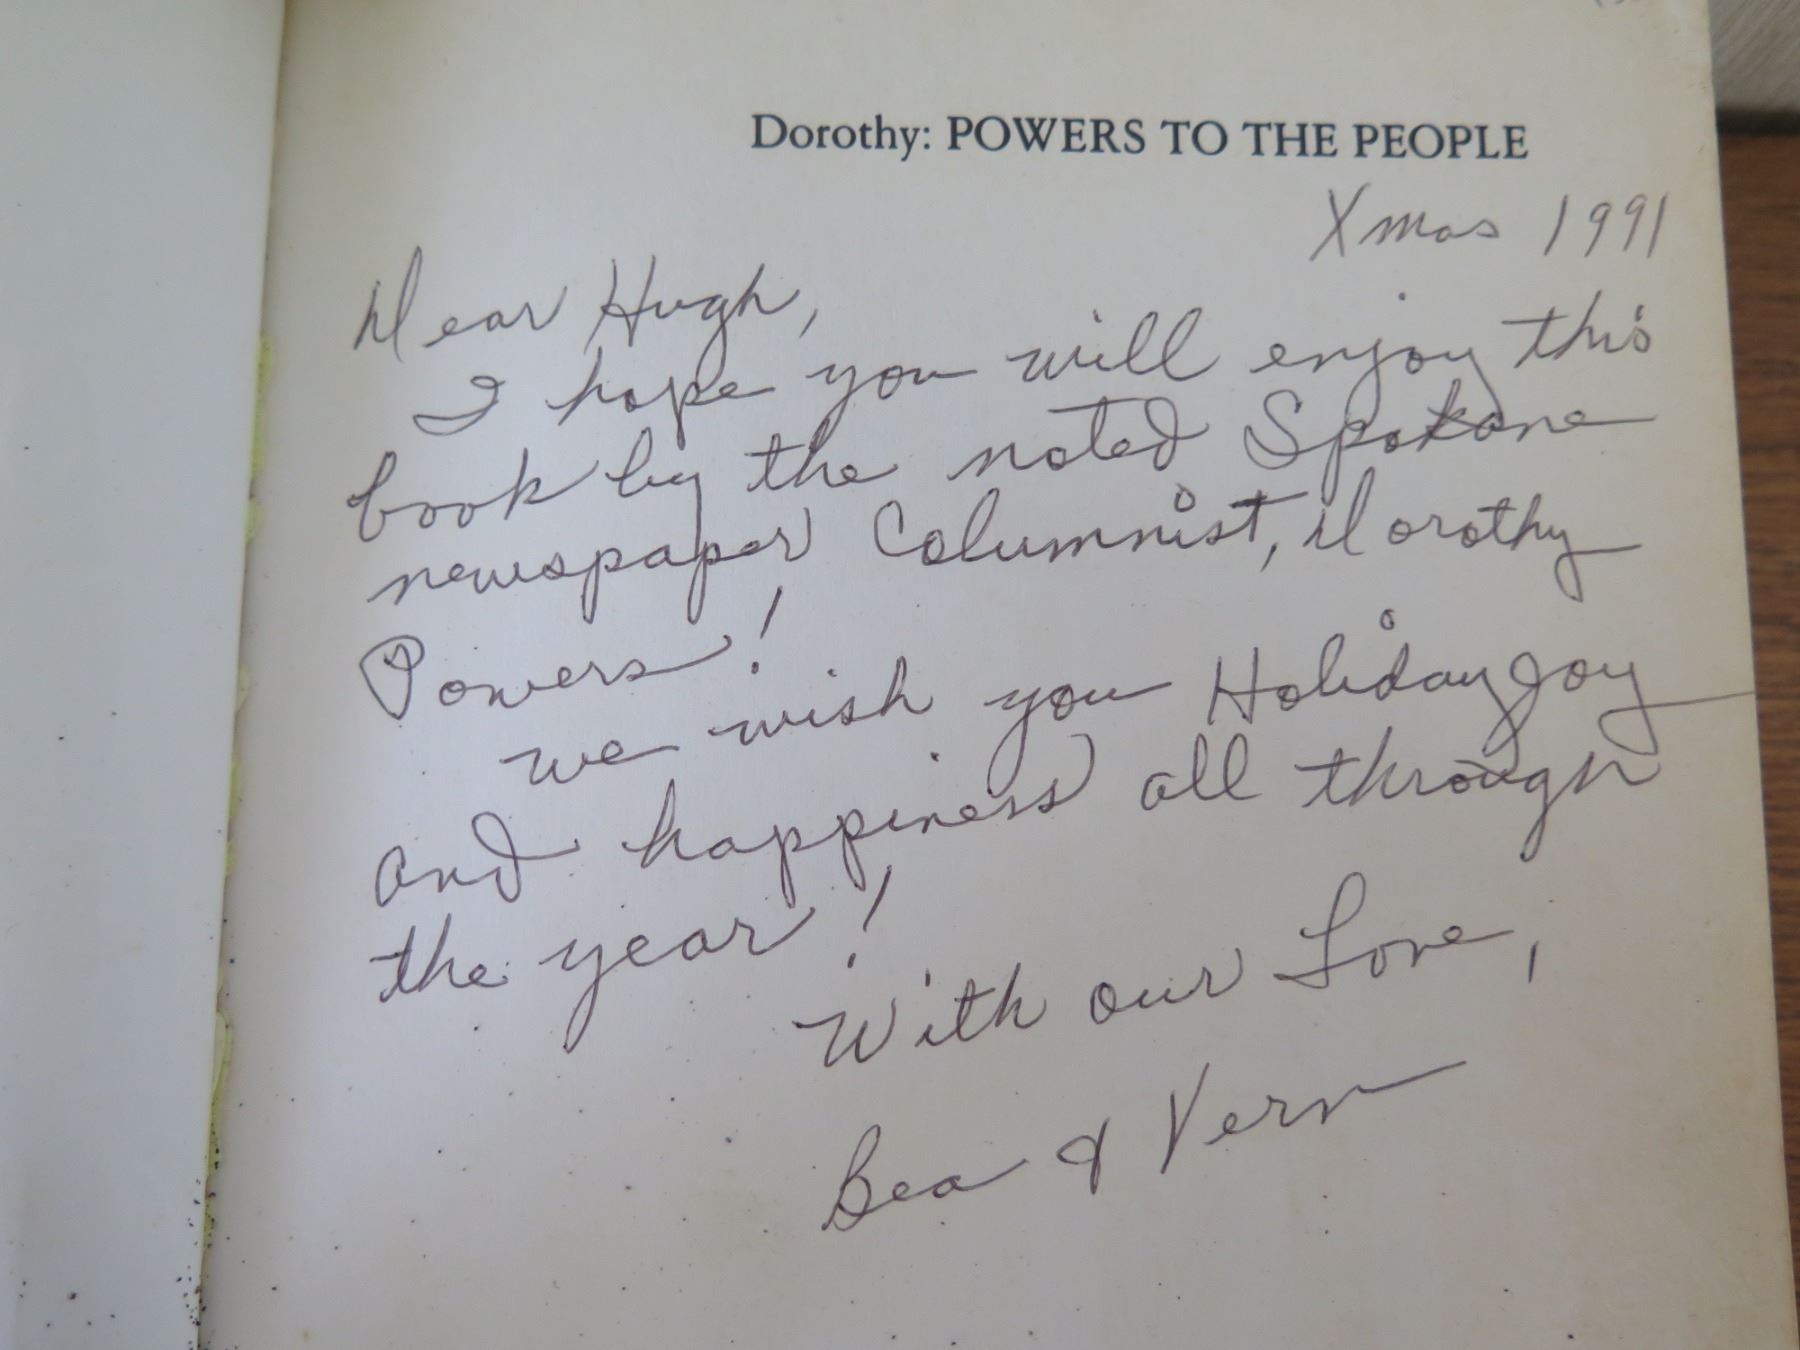 Dorothy: POWERS TO THE PEOPLE
Xmas 1991
Dear Hugh,
I hope you will enjoy this
book by the noted Spokane
newspaper Columnist, Dorothy
Powers!
we wish you Holiday Joy
and happiness all through
the year!
With our Love,
Bea & Vern